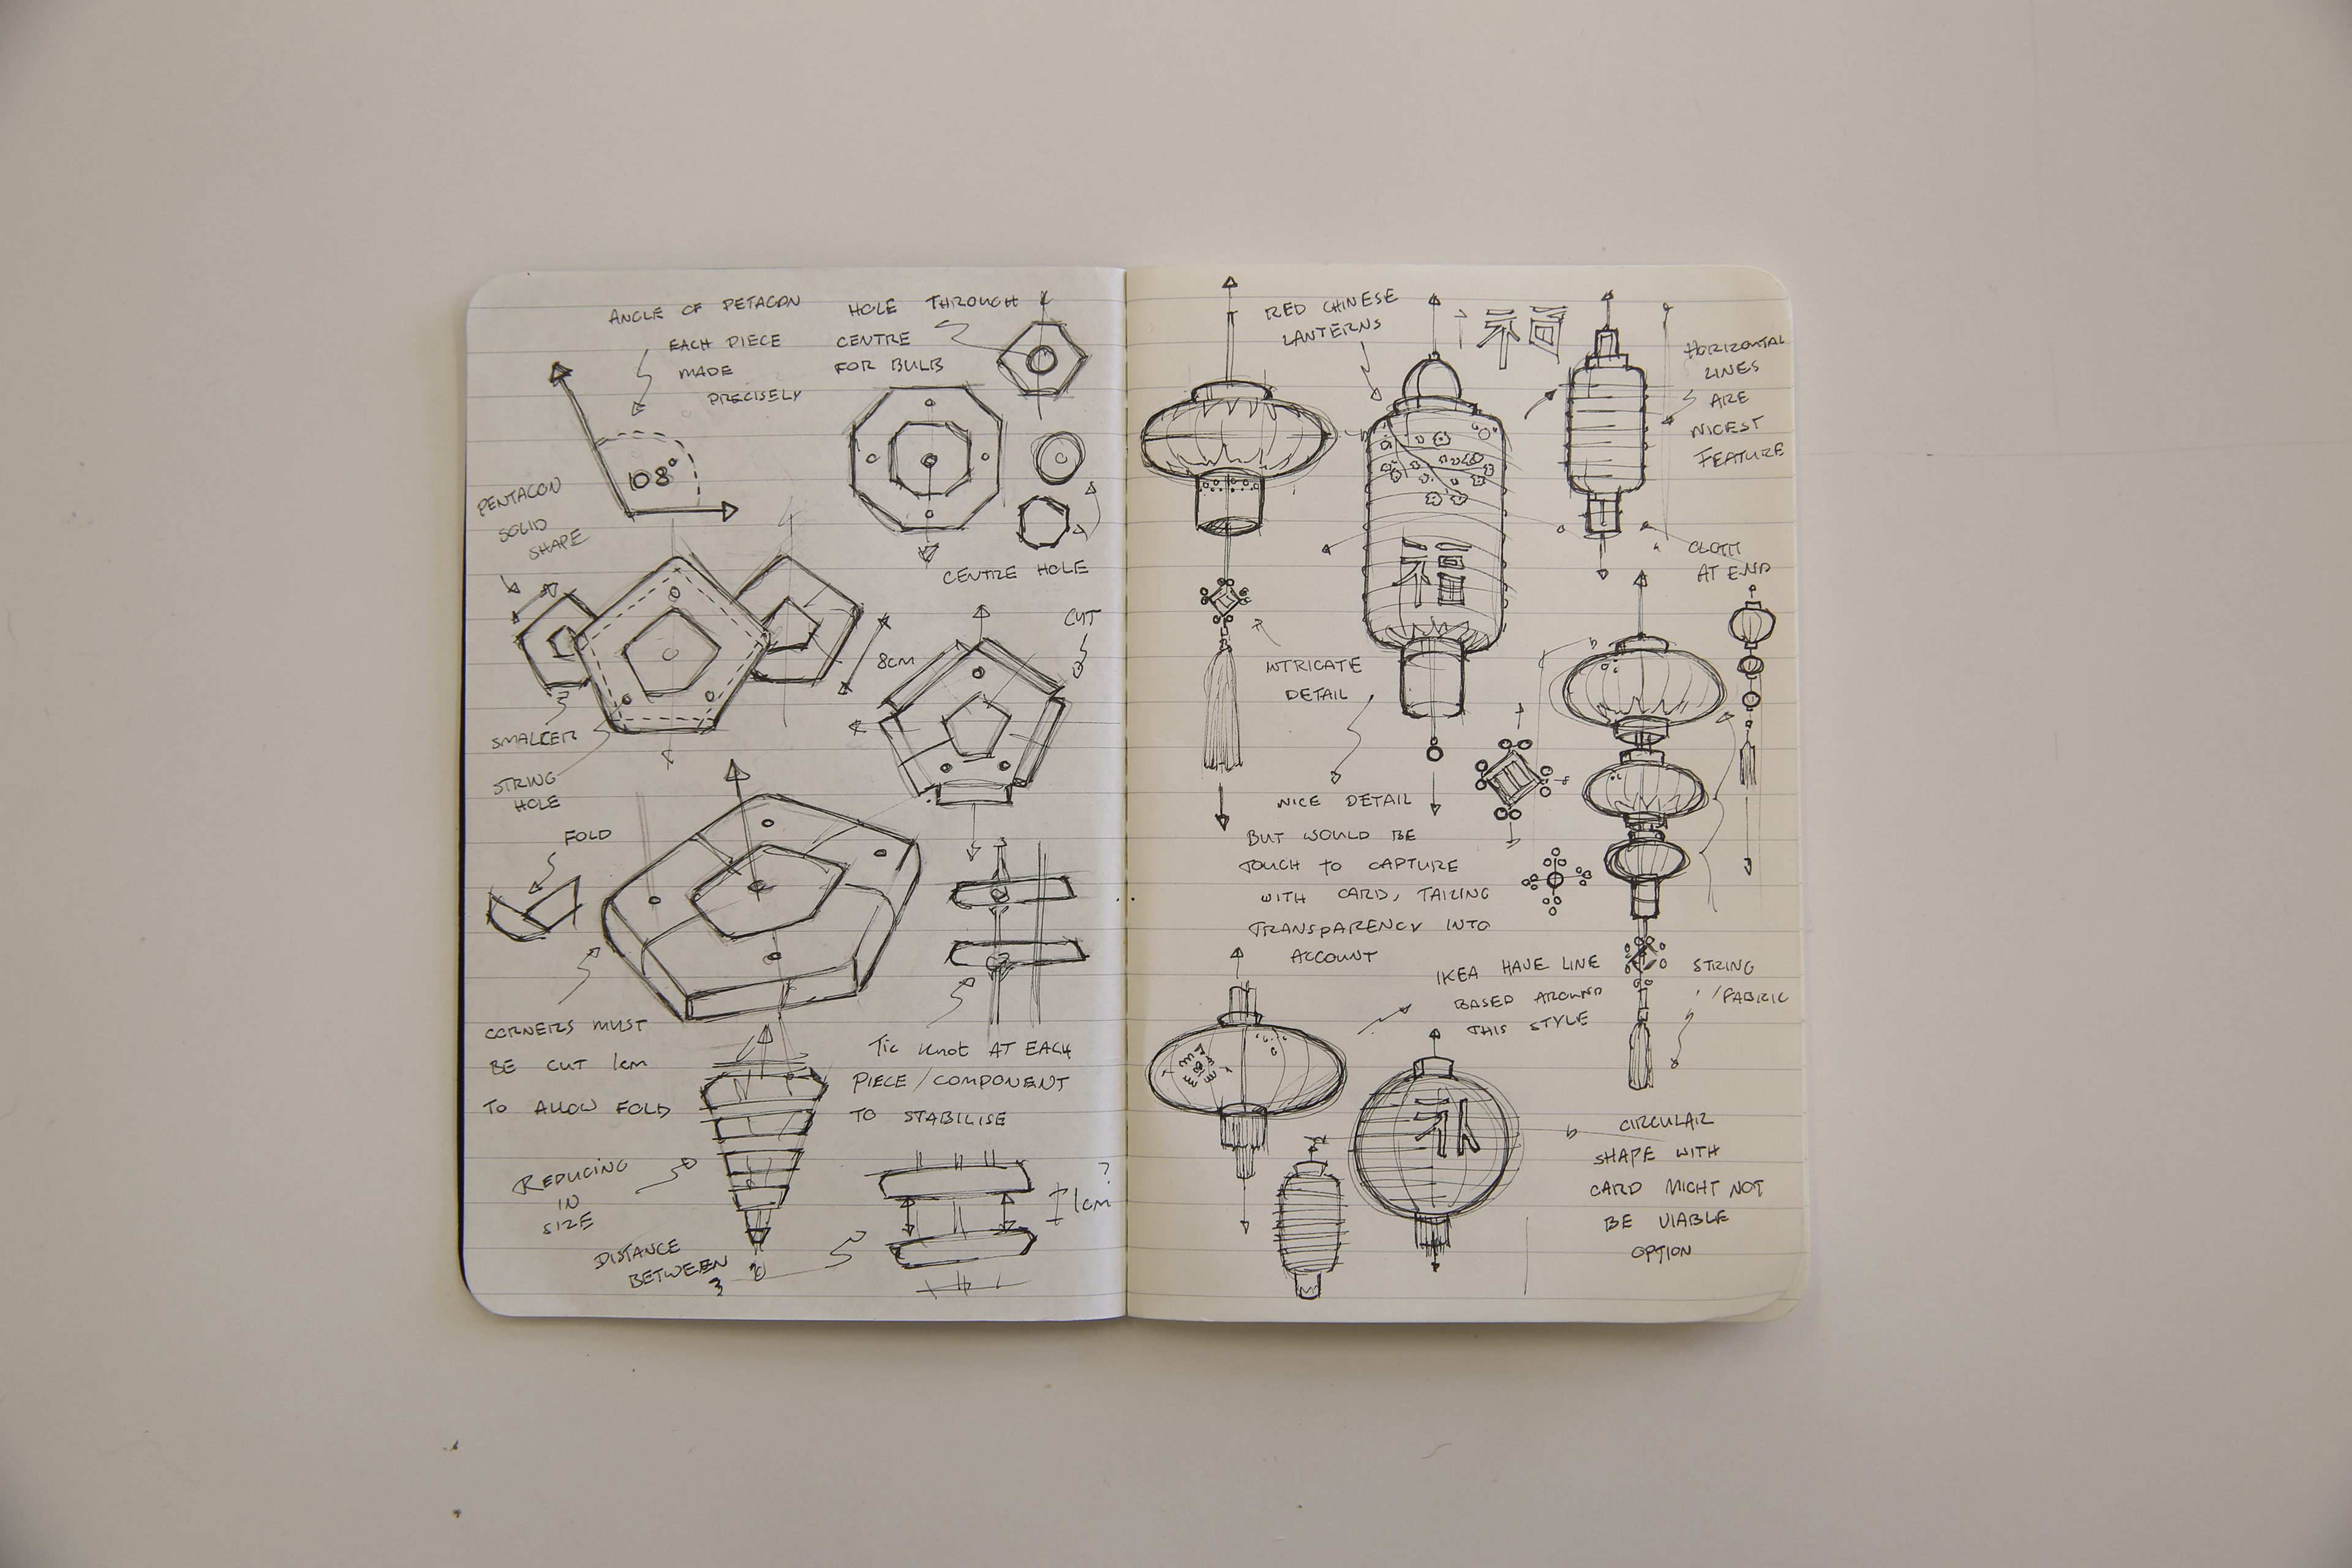 ANGLE OF PETAGON
EACH PIECE
MADE
PRECISELY
HOLE THROUGH
CENTRE
FOR BULB
108°
PENTAGON
SOLID
SHAPE
CENTRE HOLE
CUT
8CM
SMALLER
STRING
HOLE
FOLD
CORNERS MUST
BE CUT 1cm
TO ALLOW FOLD
Tie knot AT EACH
PIECE/COMPONENT
TO STABILISE
REDUCING
IN
SIZE
DISTANCE
BETWEEN
?
1cm
RED CHINESE
LANTERNS
福
HORIZONTAL
LINES
ARE
NICEST
FEATURE
福
CLOTH
AT END
INTRICATE
DETAIL
NICE DETAIL
BUT WOULD BE
TOUGH TO CAPTURE
WITH CARD, TAKING
TRANSPARENCY INTO
ACCOUNT
IKEA HAVE LINE
BASED AROUND
THIS STYLE
STRING
/FABRIC
CIRCULAR
SHAPE WITH
CARD MIGHT NOT
BE VIABLE
OPTION